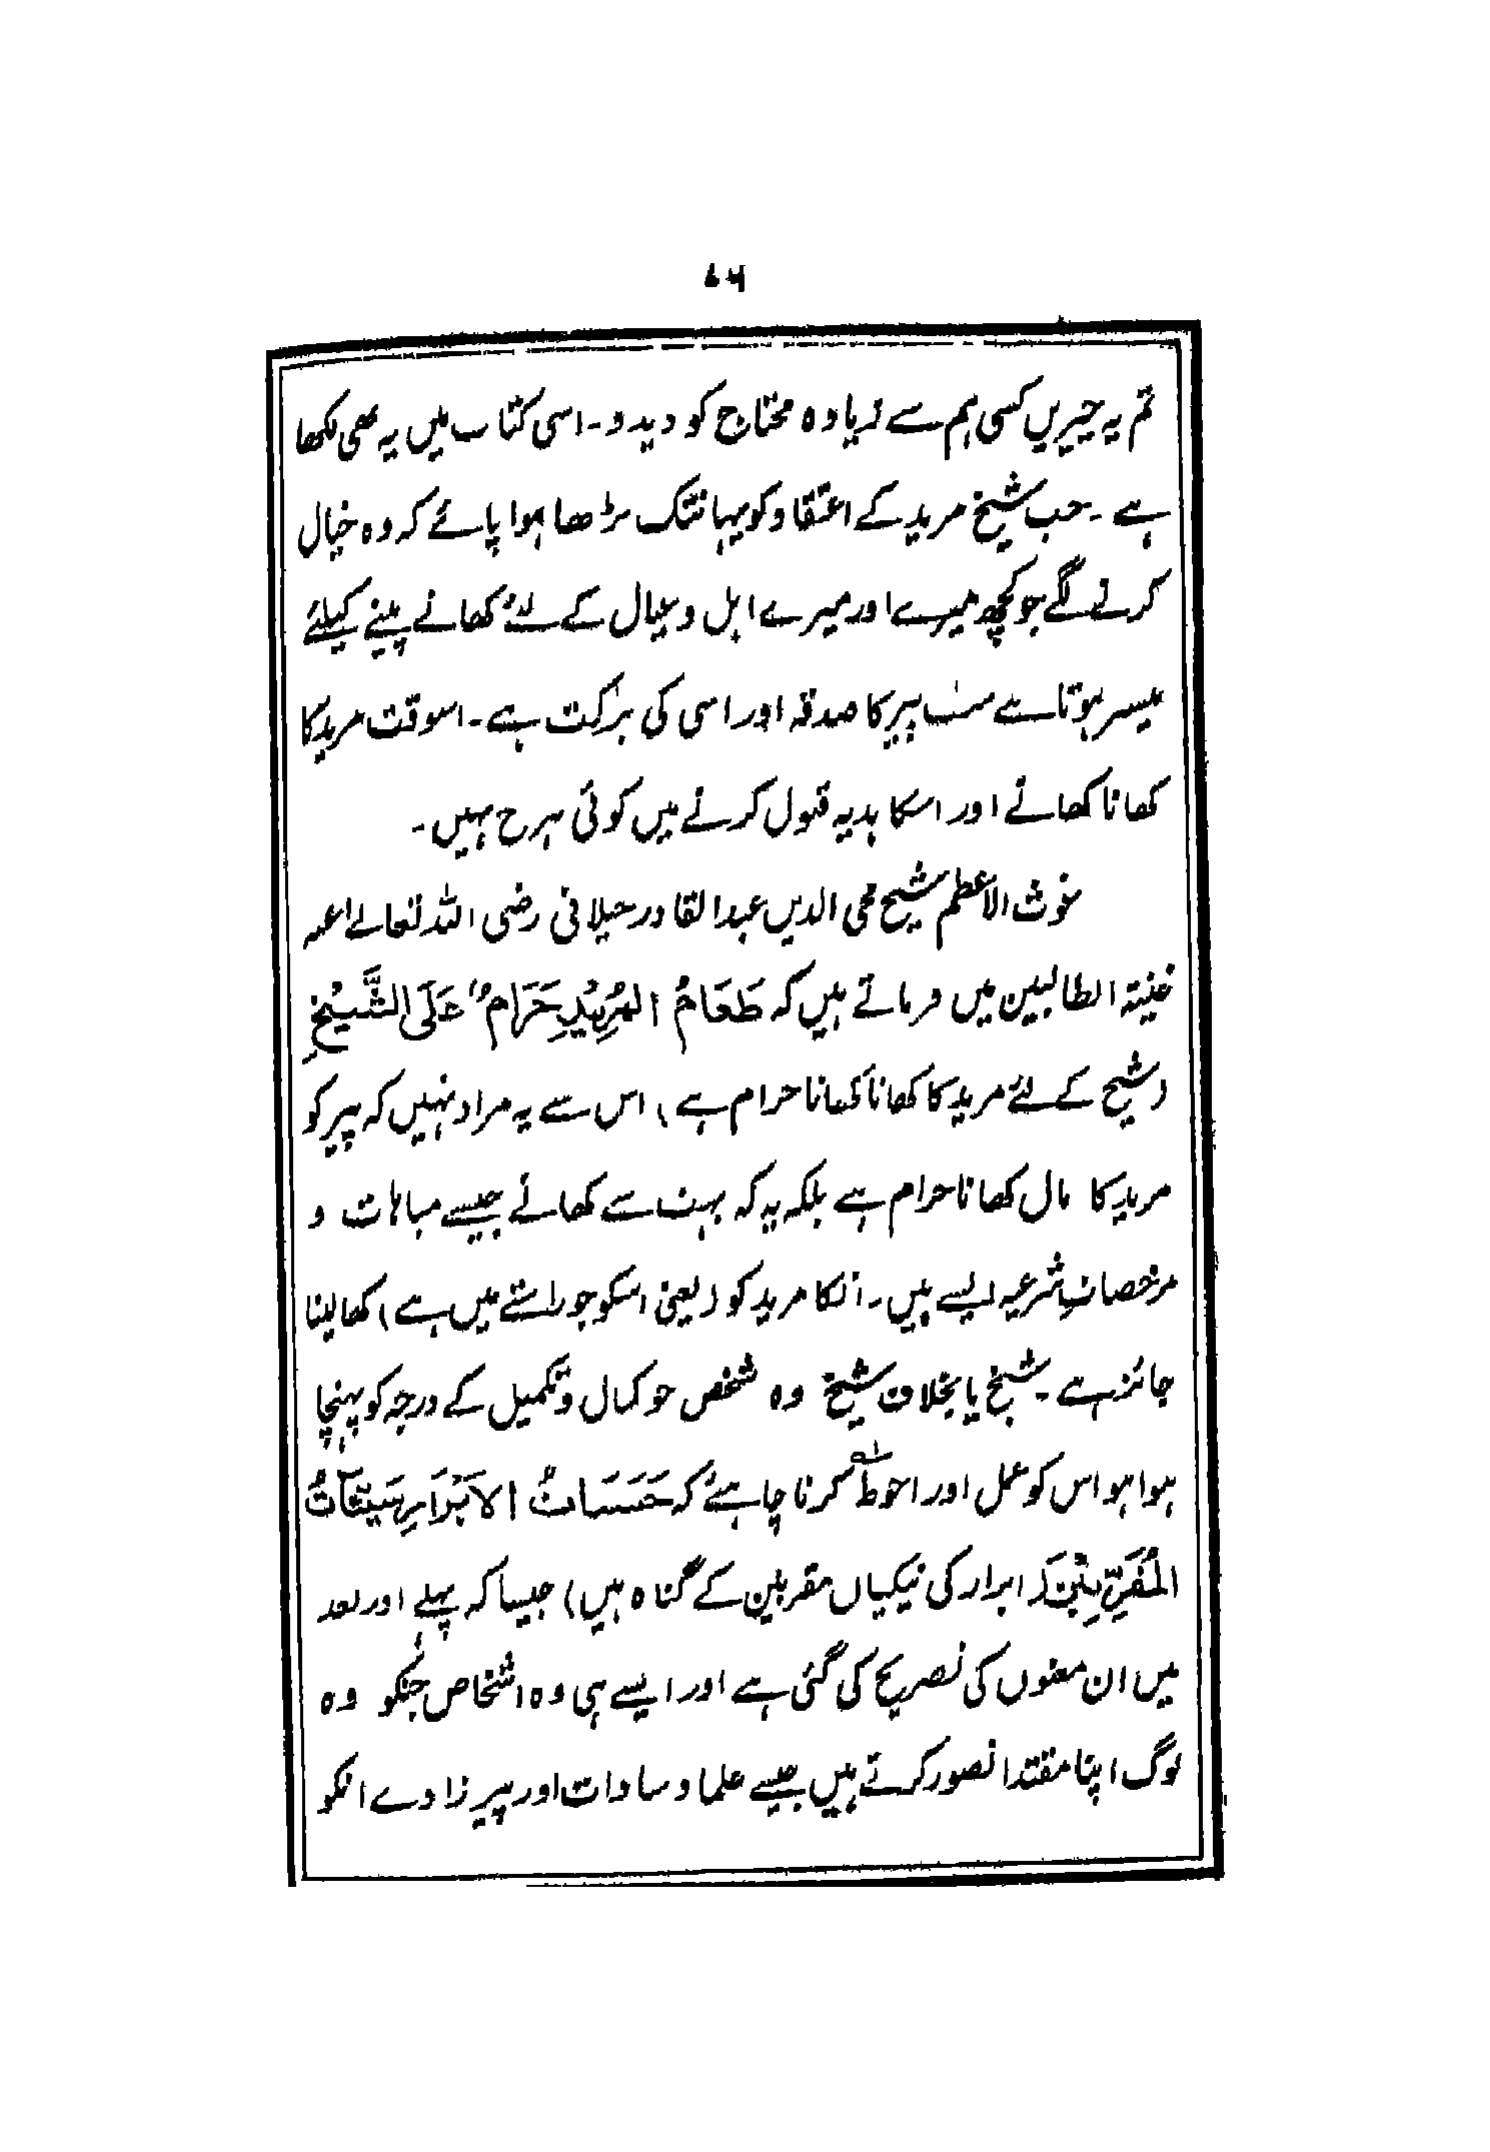 ۷۶
تم یہ چیزیں کسی ہم سے زیادہ محتاج کو دیدو۔ اسی کتاب میں یہ بھی لکھا
ہے ۔ جب شیخ مرید کے اعتقاد کو یہانتک بڑھا ہوا پائے کہ وہ خیال
کرنے لگے جو کچھ میرے اور میرے اہل و عیال کے لئے کھانے پینے کیلئے
میسر ہوتا ہے سب پیر کا صدقہ اور اسی کی برکت ہے ۔ اسوقت مرید کا
کھانا کھانے اور اسکا ہدیہ قبول کرنے میں کوئی ہرج نہیں ۔
غوث الاعظم شیخ محی الدین عبدالقادر جیلانی رضی اللہ تعالےٰ عنہ
غنیۃ الطالبین میں فرماتے ہیں کہ طَعَامُ الْمُرِیْدِ حَرَامٌ عَلَی الشَّیْخِ
(شیخ کے لئے مرید کا کھانا کھانا حرام ہے) اس سے یہ مراد نہیں کہ پیر کو
مرید کا مال کھانا حرام ہے بلکہ یہ کہ بہت سے کھانے جیسے مباہات و
مرخصاتِ شرعیہ ایسے ہیں ۔ انکا مرید کو (یعنی اسکو جو راستے میں ہے) کھا لینا
جائز ہے ۔ شیخ یا بخلاف شیخ وہ شخص جو کمال و تکمیل کے درجہ کو پہنچا
ہوا ہو اس کو عمل اور احوط کرنا چاہئے کہ حَسَنَاتُ الْاَبْرَارِ سَیِّئَاتُ
الْمُقَرَّبِیْنَ (ابرار کی نیکیاں مقربین کے گناہ ہیں) جیسا کہ پہلے اور بعد
میں ان معنوں کی تصریح کی گئی ہے اور ایسے ہی وہ اشخاص جنکو وہ
لوگ اپنا مقتدا تصور کرتے ہیں جیسے علما و سادات اور پیرزادے انکو